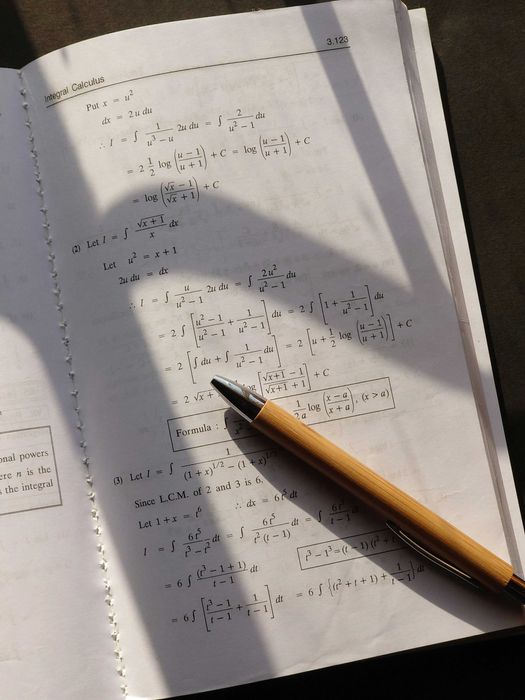 Integral Calculus 3.123
Put x = u²
dx = 2u du
∴ I = ∫ 1/(u³ − u) 2u du = ∫ 2/(u² − 1) du
= 2 1/2 log ((u − 1)/(u + 1)) + C = log ((u − 1)/(u + 1)) + C
= log ((√x − 1)/(√x + 1)) + C
(2) Let I = ∫ √(x + 1)/x dx
Let u² = x + 1
2u du = dx
∴ I = ∫ u/(u² − 1) 2u du = ∫ 2u²/(u² − 1) du
= 2 ∫ [(u² − 1)/(u² − 1) + 1/(u² − 1)] du = 2 ∫ [1 + 1/(u² − 1)] du
= 2 [∫ du + ∫ 1/(u² − 1) du] = 2 [u + 1/2 log ((u − 1)/(u + 1))] + C
= 2 √x + log [(√(x+1) − 1)/(√(x+1) + 1)] + C
Formula : ∫ 1/2a log ((x − a)/(x + a)), (x > a)
(3) Let I = ∫ 1/((1 + x)^1/2 − (1 + x)^1/3
Since L.C.M. of 2 and 3 is 6.
Let 1 + x = t⁶ ∴ dx = 6t⁵ dt
I = ∫ 6t⁵/(t³ − t²) dt = ∫ 6t⁵/(t² (t − 1)) dt = ∫ 6t³/(t − 1)
t³ − 1³ = (t − 1) (t² +
= 6 ∫ (t³ − 1 + 1)/(t − 1) dt
= 6 ∫ [(t³ − 1)/(t − 1) + 1/(t − 1)] dt = 6 ∫ {(t² + t + 1) + 1/(t − 1)} dt
onal powers
ere n is the
s the integral